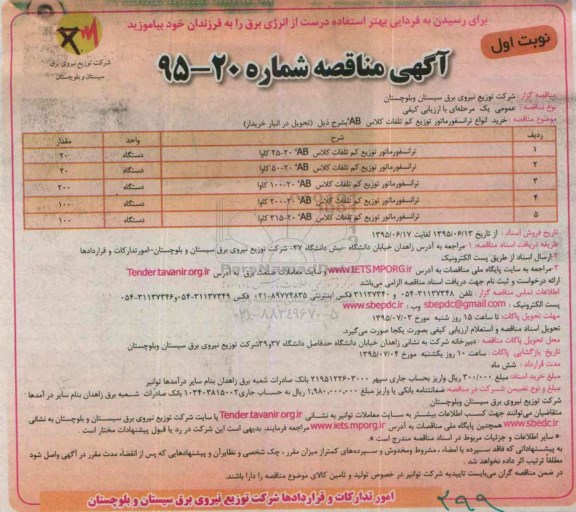 برای رسیدن به فردایی بهتر استفاده درست از انرژی برق را به فرزندان خود بیاموزید
نوبت اول
شرکت توزیع نیروی برق
سیستان و بلوچستان
آگهی مناقصه شماره ۲۰-۹۵
مناقصه گزار: شرکت توزیع نیروی برق سیستان وبلوچستان
نوع مناقصه: عمومی یک مرحله‌ای با ارزیابی کیفی
موضوع مناقصه: خرید انواع ترانسفورماتور توزیع کم تلفات کلاس AB' بشرح ذیل (تحویل در انبار خریدار)
ردیف شرح واحد مقدار
۱ ترانسفورماتور توزیع کم تلفات کلاس AB' ۲۰-۲۵ کاوا دستگاه ۲۰
۲ ترانسفورماتور توزیع کم تلفات کلاس AB' ۲۰-۵۰ کاوا دستگاه ۲۰
۳ ترانسفورماتور توزیع کم تلفات کلاس AB' ۲۰-۱۰۰ کاوا دستگاه ۲۰۰
۴ ترانسفورماتور توزیع کم تلفات کلاس AB' ۲۰-۲۰۰ کاوا دستگاه ۱۰۰
۵ ترانسفورماتور توزیع کم تلفات کلاس AB' ۲۰-۳۱۵ کاوا دستگاه ۱۰۰
تاریخ فروش اسناد: از تاریخ ۱۳۹۵/۰۶/۱۳ لغایت ۱۳۹۵/۰۶/۱۷
طریقه دریافت اسناد مناقصه: ۱- مراجعه به آدرس زاهدان خیابان دانشگاه -نبش دانشگاه ۳۷- شرکت توزیع نیروی برق سیستان و بلوچستان-امورتدارکات و قراردادها
۲-ارسال اسناد از طریق پست الکترونیک
۳-مراجعه به سایت پایگاه ملی مناقصات به آدرس WWW.IETS.MPORG.IR و سایت معاملات صنعت برق به آدرس Tender.tavanir.org.ir
ارائه درخواست و ثبت نام جهت دریافت اسناد مناقصه الزامی می‌باشد
اطلاعات تماس مناقصه گزار: تلفن ۳۱۱۳۷۳۴۸-۰۵۴ و ۳۱۱۳۷۳۴۰ فکس اینترنتی ۸۹۷۷۴۸۳۵-۰۲۱ فکس ۳۱۱۳۷۳۴۹-۰۵۴و۳۱۱۳۷۳۴۶-۰۵۴
پست الکترونیک: sbepdc@gmail.com وب: www.sbepdc.ir
مهلت تحویل پاکات: تا ساعت ۱۵ روز شنبه مورخ ۱۳۹۵/۰۷/۰۳
تحویل اسناد مناقصه و استعلام ارزیابی کیفی بصورت یکجا صورت می‌گیرد.
محل تحویل پاکات مناقصه: دبیرخانه شرکت به نشانی زاهدان خیابان دانشگاه حدفاصل دانشگاه ۳۷و۳۹شرکت توزیع نیروی برق سیستان وبلوچستان
تاریخ بازگشایی پاکات: ساعت ۱۰ روز یکشنبه مورخ ۱۳۹۵/۰۷/۰۴
مدت قرارداد: شش ماه
مبلغ خرید اسناد: مبلغ ۳۰۰/۰۰۰ ریال واریز بحساب جاری سپهر ۲۱۹۵۱۲۲۶۰۳۰۰۰ بانک صادرات شعبه برق زاهدان بنام سایر درآمدها توانیر
مبلغ و نوع تضمین شرکت در مناقصه: ضمانتنامه بانکی یا واریز مبلغ ۱,۹۸۰,۰۰۰,۰۰۰ ریال به حساب جاری۰۱۰۳۴۰۳۸۱۵۰۰۳ بانک صادرات شعبه برق زاهدان بنام سایر در آمدها
شرکت توزیع نیروی برق سیستان وبلوچستان
متقاضیان می‌توانند جهت کسب اطلاعات بیشتر به سایت معاملات توانیر به نشانی Tender.tavanir.org.ir یا سایت شرکت توزیع نیروی برق سیستان و بلوچستان به نشانی
www.sbedc.ir همچنین پایگاه ملی مناقصات به آدرس www.iets.mporg.ir مراجعه فرمایند. بدیهی است این شرکت در رد یا قبول پیشنهادات مختار است.
« سایر اطلاعات و جزئیات مربوط در اسناد مناقصه مندرج است »
به پیشنهاداتی که فاقد سپرده یا امضاء، مشروط ومخدوش و سپرده‌های کمتراز میزان مقرر، چک شخصی و نظایرآن و پیشنهادهایی که پس از انقضاء مدت مقرر در آگهی واصل شود
مطلقاً ترتیب اثر داده نخواهد شد.
در ضمن مناقصه گران می‌بایست تاییدیه شرکت توانیر در خصوص تولید و تامین کالای موضوع مناقصه را دارا باشند.
امور تدارکات و قراردادها شرکت توزیع نیروی برق سیستان و بلوچستان
۲۹۹
۰۲۱-۸۸۳۴۹۶۷۰-۵